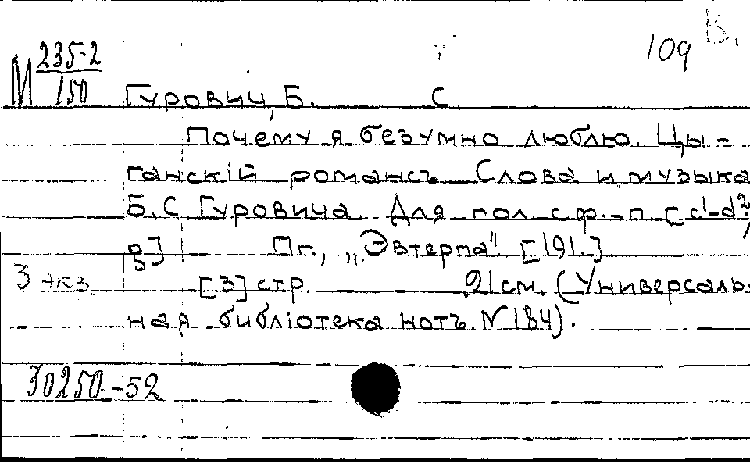 109 В.
М 235-2/150
Гурович, Б. С.
Почему я безумно люблю. Цы-
ганскій романсъ. Слова и музыка
Б. С. Гуровича. Для гол. с ф.-п. [c¹-d²,
g] Пг., „Эвтерпа". [191.]
3 экз. [3] стр. 21 см. (Универсаль-
ная библіотека нотъ. № 184).
30250-52